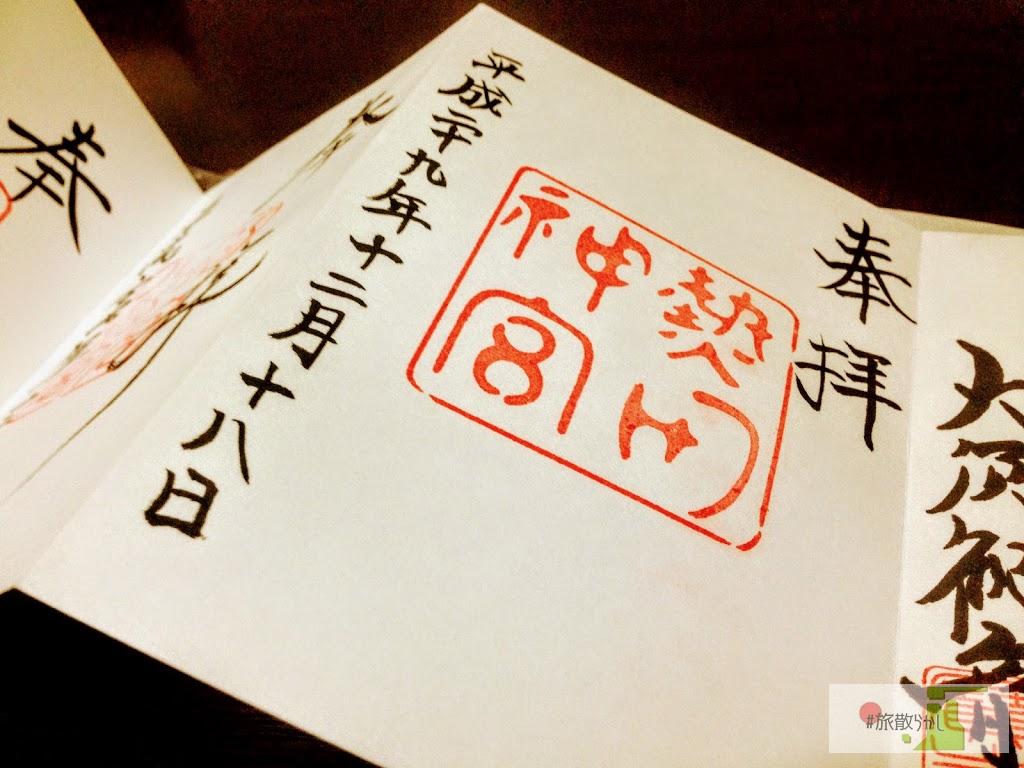 奉拝
熱田
神宮
平成二十九年十二月十八日
奉
大須
#旅散らかし